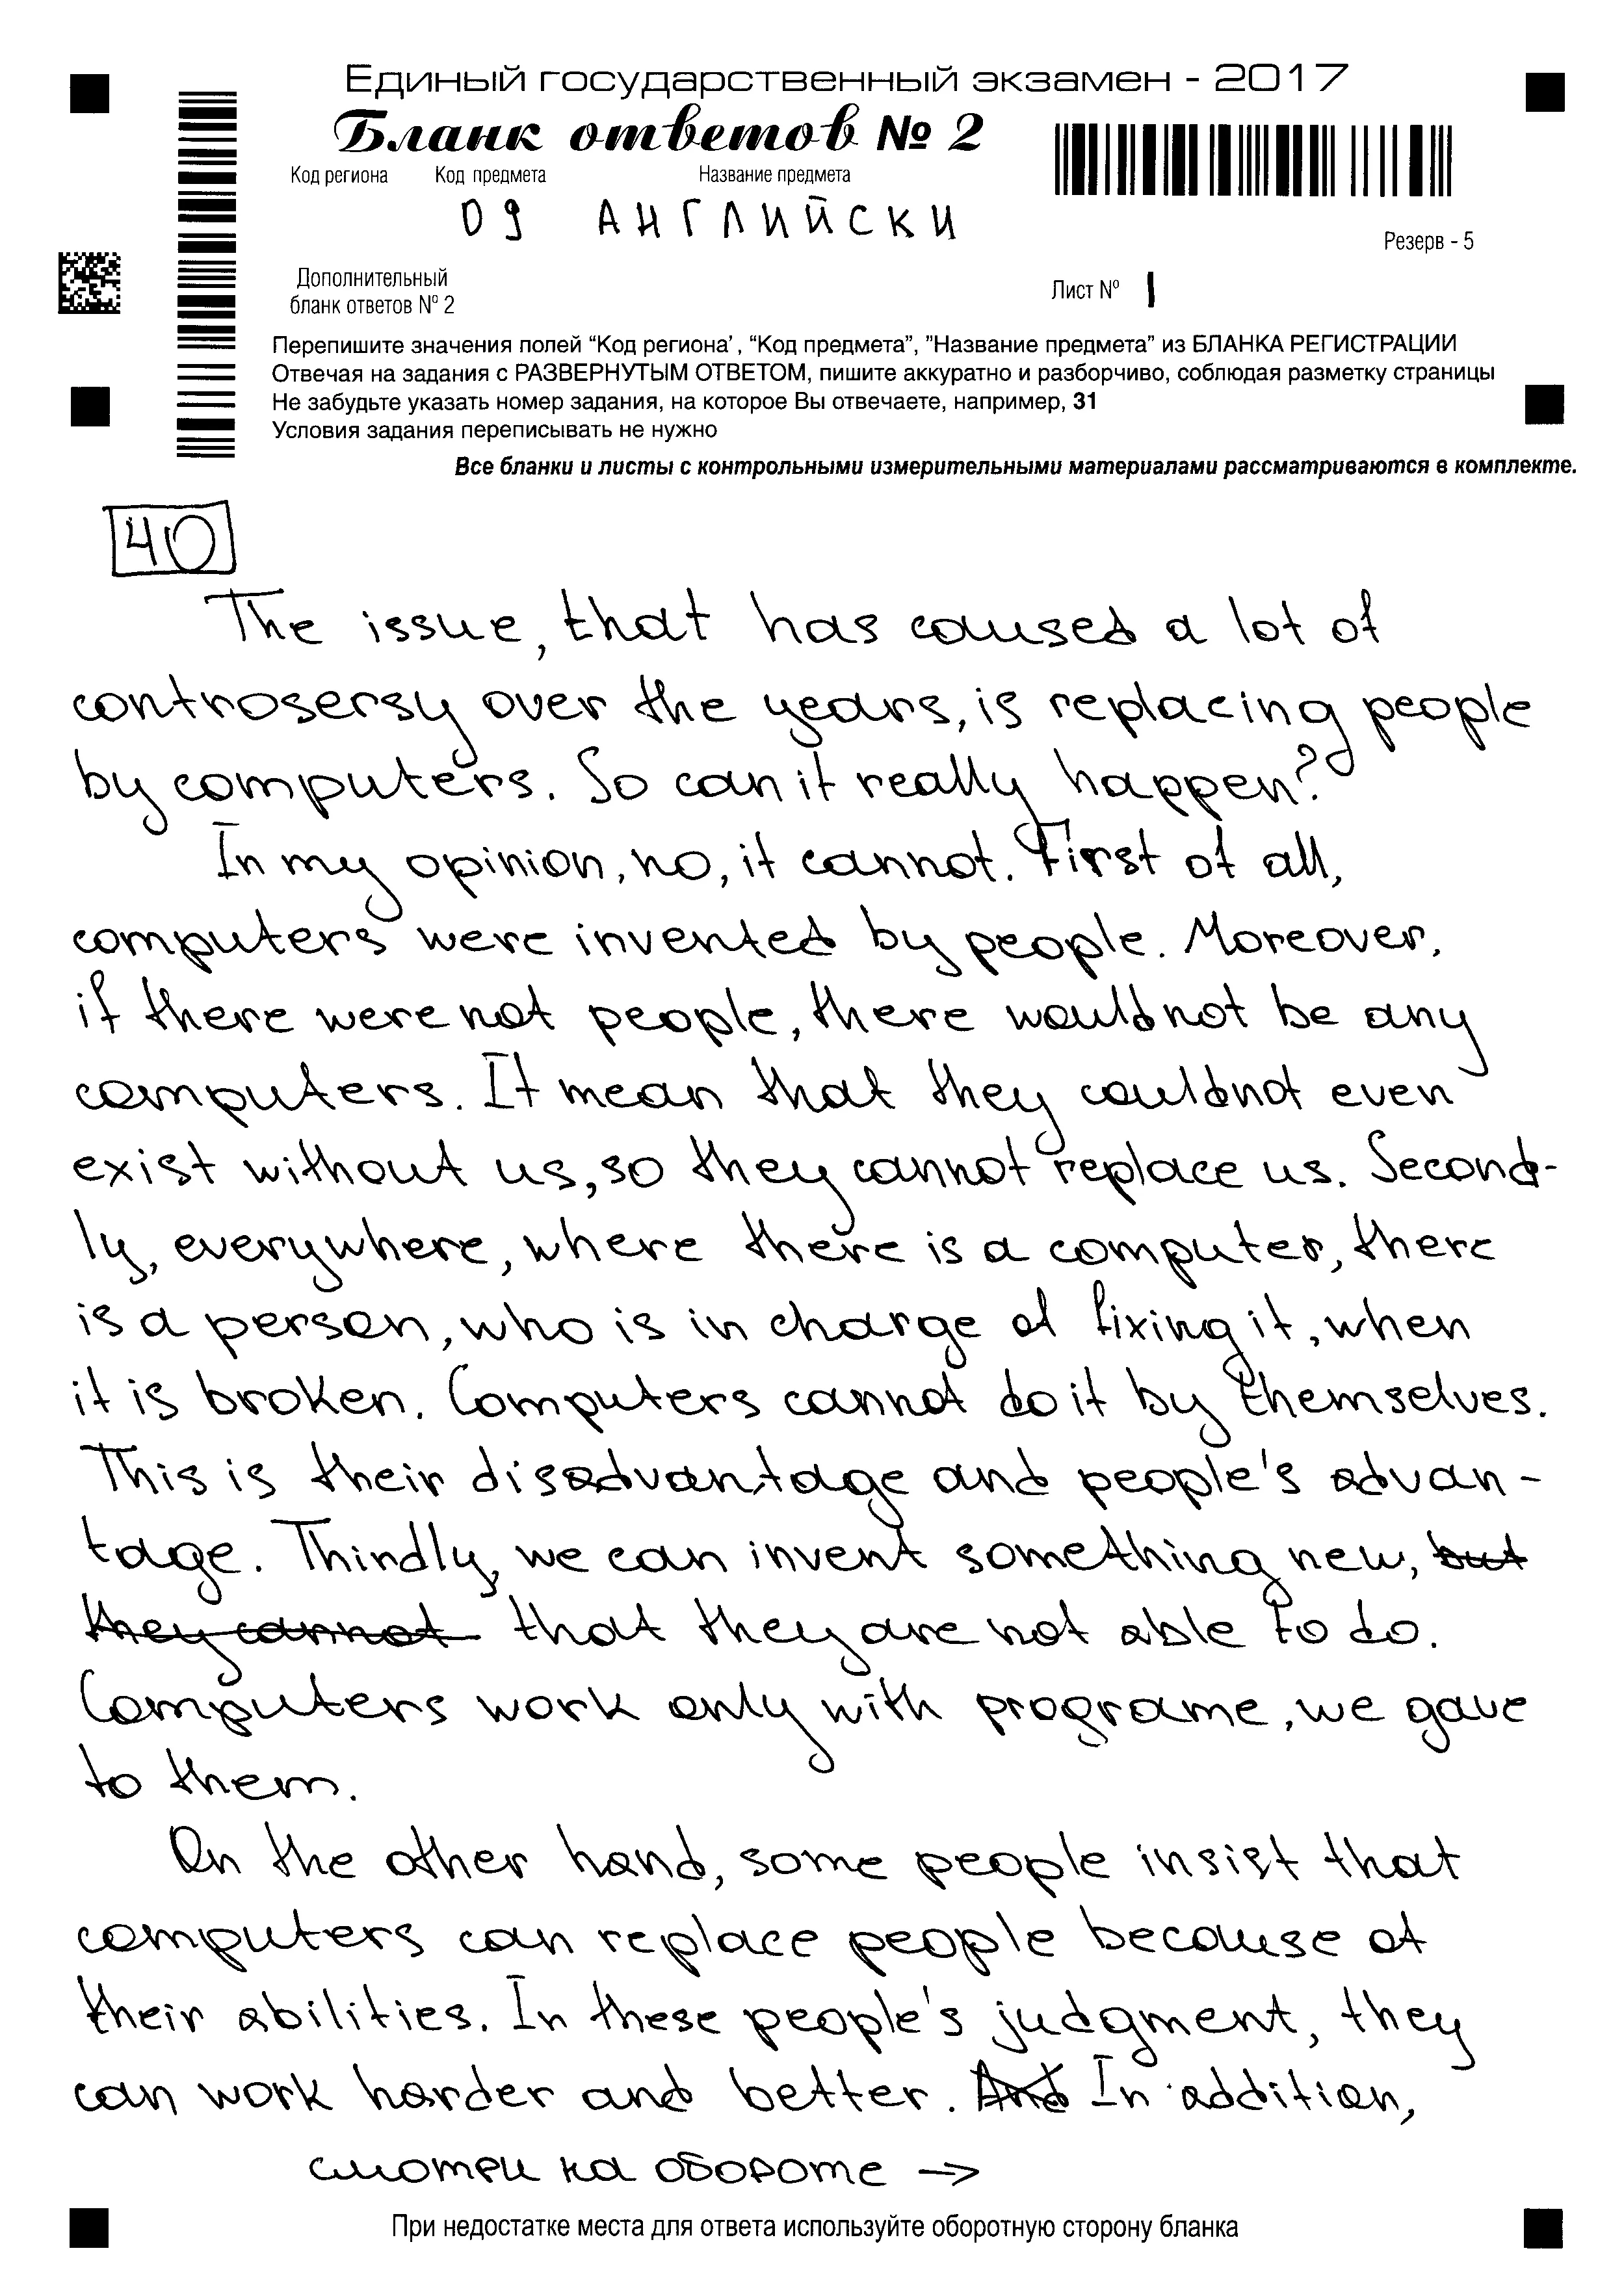 Единый государственный экзамен - 2017
Бланк ответов № 2
Код региона Код предмета Название предмета
09 АНГЛИЙСКИ
Резерв - 5
Дополнительный
бланк ответов № 2
Лист № 1
Перепишите значения полей “Код региона’, “Код предмета”, ”Название предмета” из БЛАНКА РЕГИСТРАЦИИ
Отвечая на задания с РАЗВЕРНУТЫМ ОТВЕТОМ, пишите аккуратно и разборчиво, соблюдая разметку страницы
Не забудьте указать номер задания, на которое Вы отвечаете, например, 31
Условия задания переписывать не нужно
Все бланки и листы с контрольными измерительными материалами рассматриваются в комплекте.
40
The issue, that has caused a lot of
controsersy over the years, is replacing people
by computers. So can it really happen?
In my opinion, no, it cannot. First of all,
computers were invented by people. Moreover,
if there were not people, there would not be any
computers. It mean that they could not even
exist without us, so they cannot replace us. Second-
ly, everywhere, where there is a computer, there
is a person, who is in charge of fixing it, when
it is broken. Computers cannot do it by themselves.
This is their disadvantage and people's advan-
tage. Thirdly, we can invent something new, but
they cannot that they are not able to do.
Computers work only with programe, we gave
to them.
On the other hand, some people insist that
computers can replace people because of
their abilities. In these people's judgment, they
can work harder and better. And In addition,
смотри на обороте →
При недостатке места для ответа используйте оборотную сторону бланка